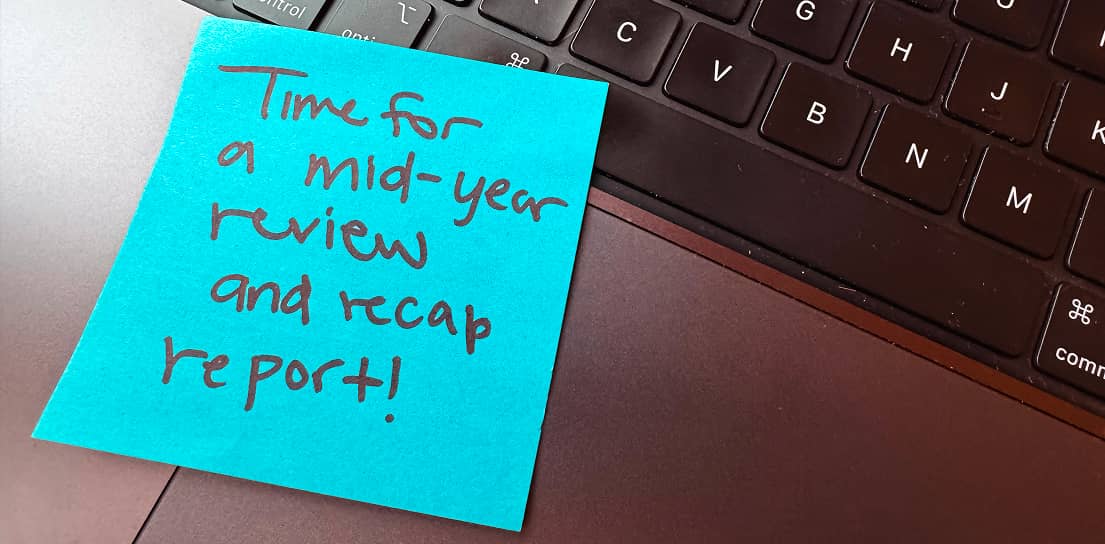 control
opti
⌥
⌘
C
V
B
N
M
G
H
J
K
⌘
comm
Time for
a mid-year
review
and recap
report!